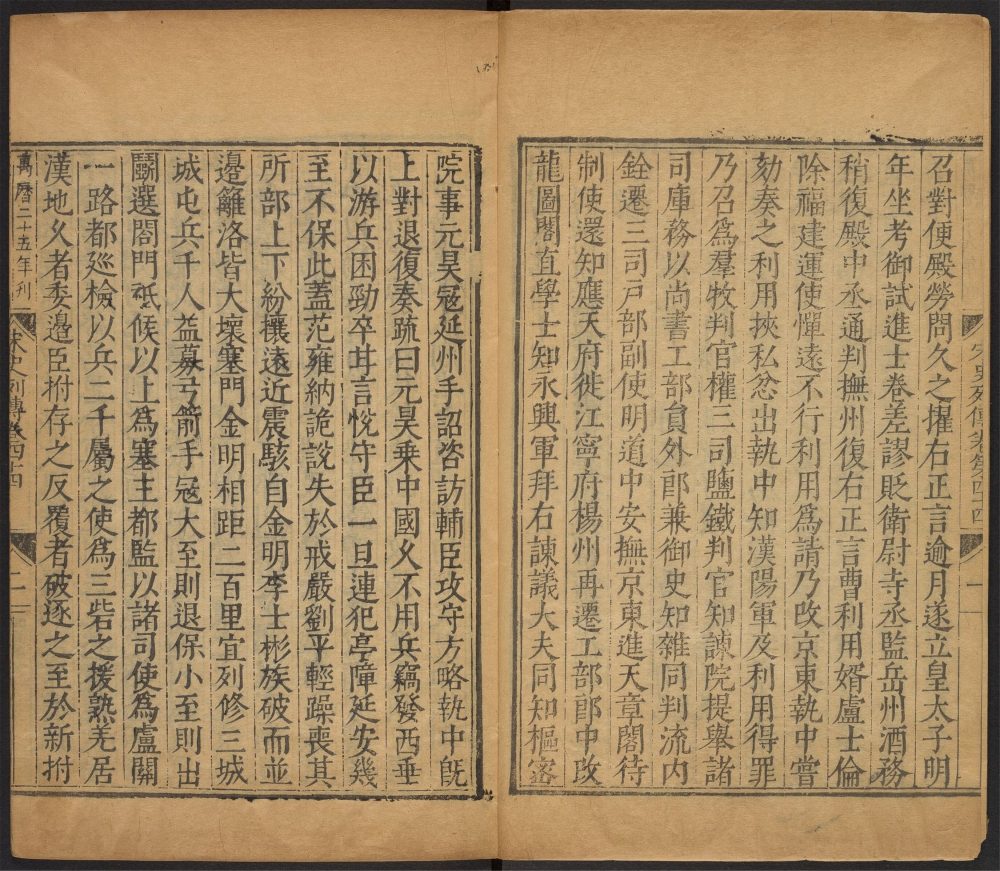 召對便殿勞問久之擢右正言逾月遂立皇太子明
年坐考御試進士卷差謬貶衛尉寺丞監岳州酒務
稍復殿中丞通判撫州復右正言曹利用婿盧士倫
除福建運使憚遠不行利用爲請乃改京東執中嘗
劾奏之利用挾私忿出執中知漢陽軍及利用得罪
乃召爲羣牧判官權三司鹽鐵判官知諫院提舉諸
司庫務以尚書工部員外郎兼御史知雜同判流內
銓遷三司戶部副使明道中安撫京東進天章閣待
制使還知應天府徙江寧府楊州再遷工部郎中改
龍圖閣直學士知永興軍拜右諫議大夫同知樞密
院事元昊冦延州手詔咨訪輔臣攻守方略執中旣
上對退復奏疏曰元昊乗中國久不用兵竊發西垂
以游兵困勁卒甘言悅守臣一旦連犯亭障延安幾
至不保此蓋范雍納詭說失於戒嚴劉平輕躁喪其
所部上下紛攘遠近震駭自金明李士彬族破而並
邊籬洛皆大壞塞門金明相距二百里宜列修三城
城屯兵千人益募弓箭手冦大至則退保小至則出
鬬選閤門祗候以上爲塞主都監以諸司使爲盧關
一路都廵檢以兵二千屬之使爲三砦之援熟羌居
漢地久者委邊臣拊存之反覆者破逐之至於新拊
萬曆二十五年刊
宋史列傳卷四十四
二